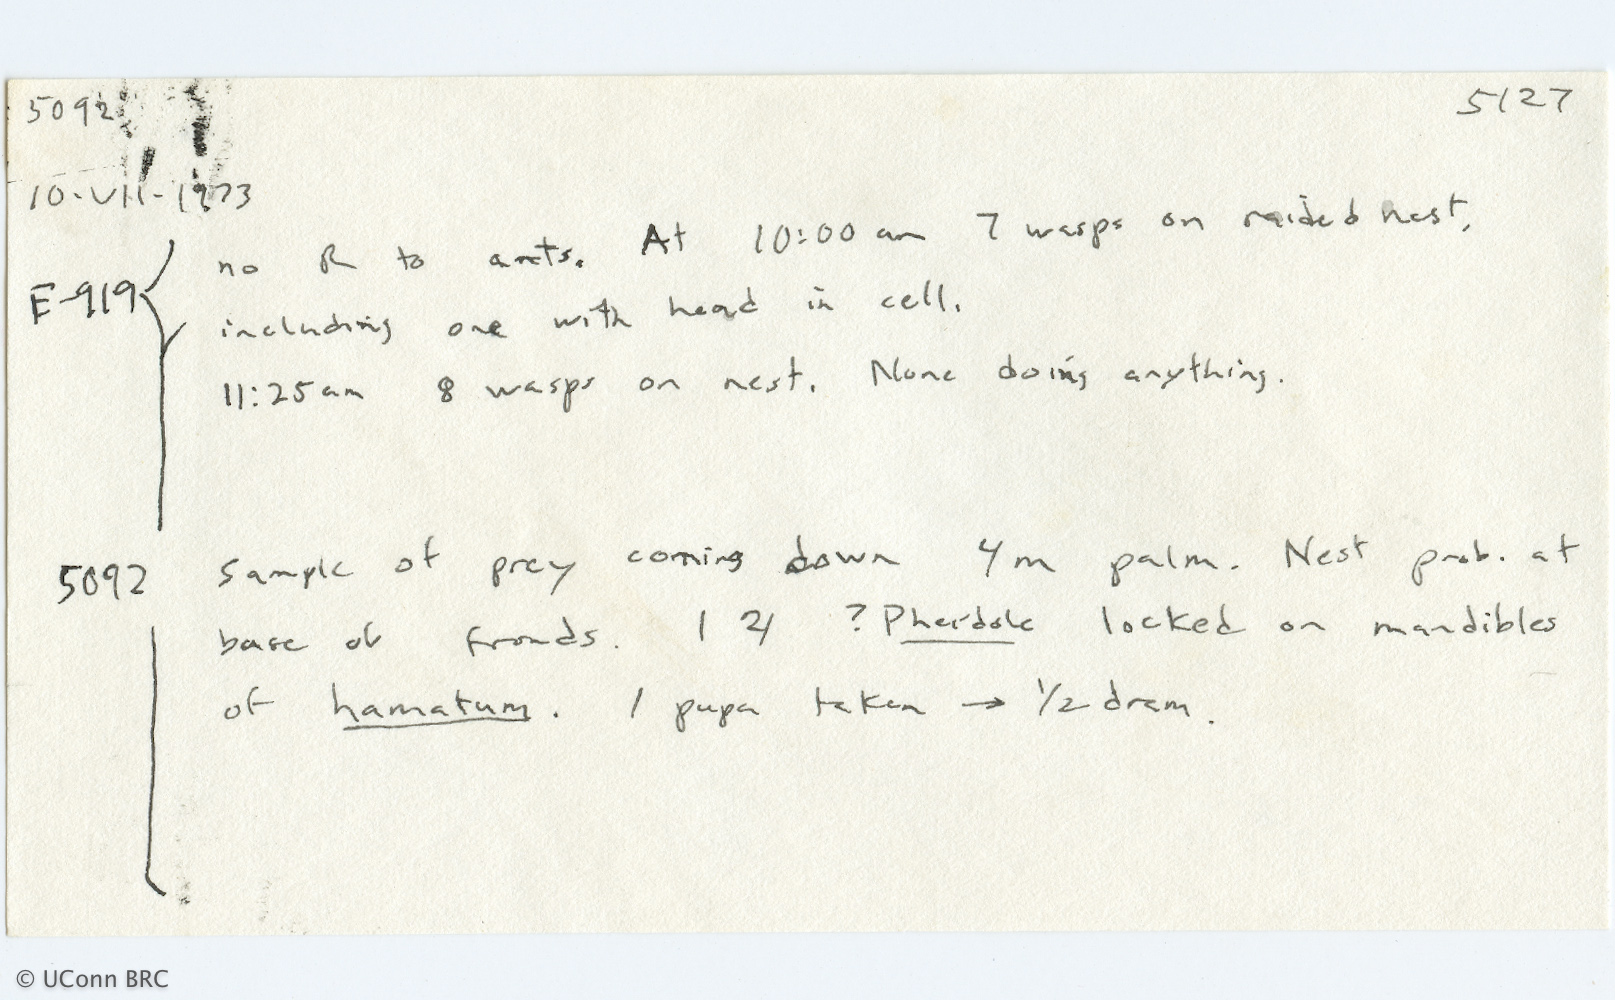 5092 5127
10-VII-1973
no R to ants. At 10:00 am 7 wasps on raided nest,
E-919
including one with head in cell.
11:25am 8 wasps on nest. None doing anything.
5092 Sample of prey coming down 4m palm. Nest prob. at
base of fronds. 1 ♃ ? Pheidole locked on mandibles
of hamatum. 1 pupa taken → 1/2 dram.
© UConn BRC